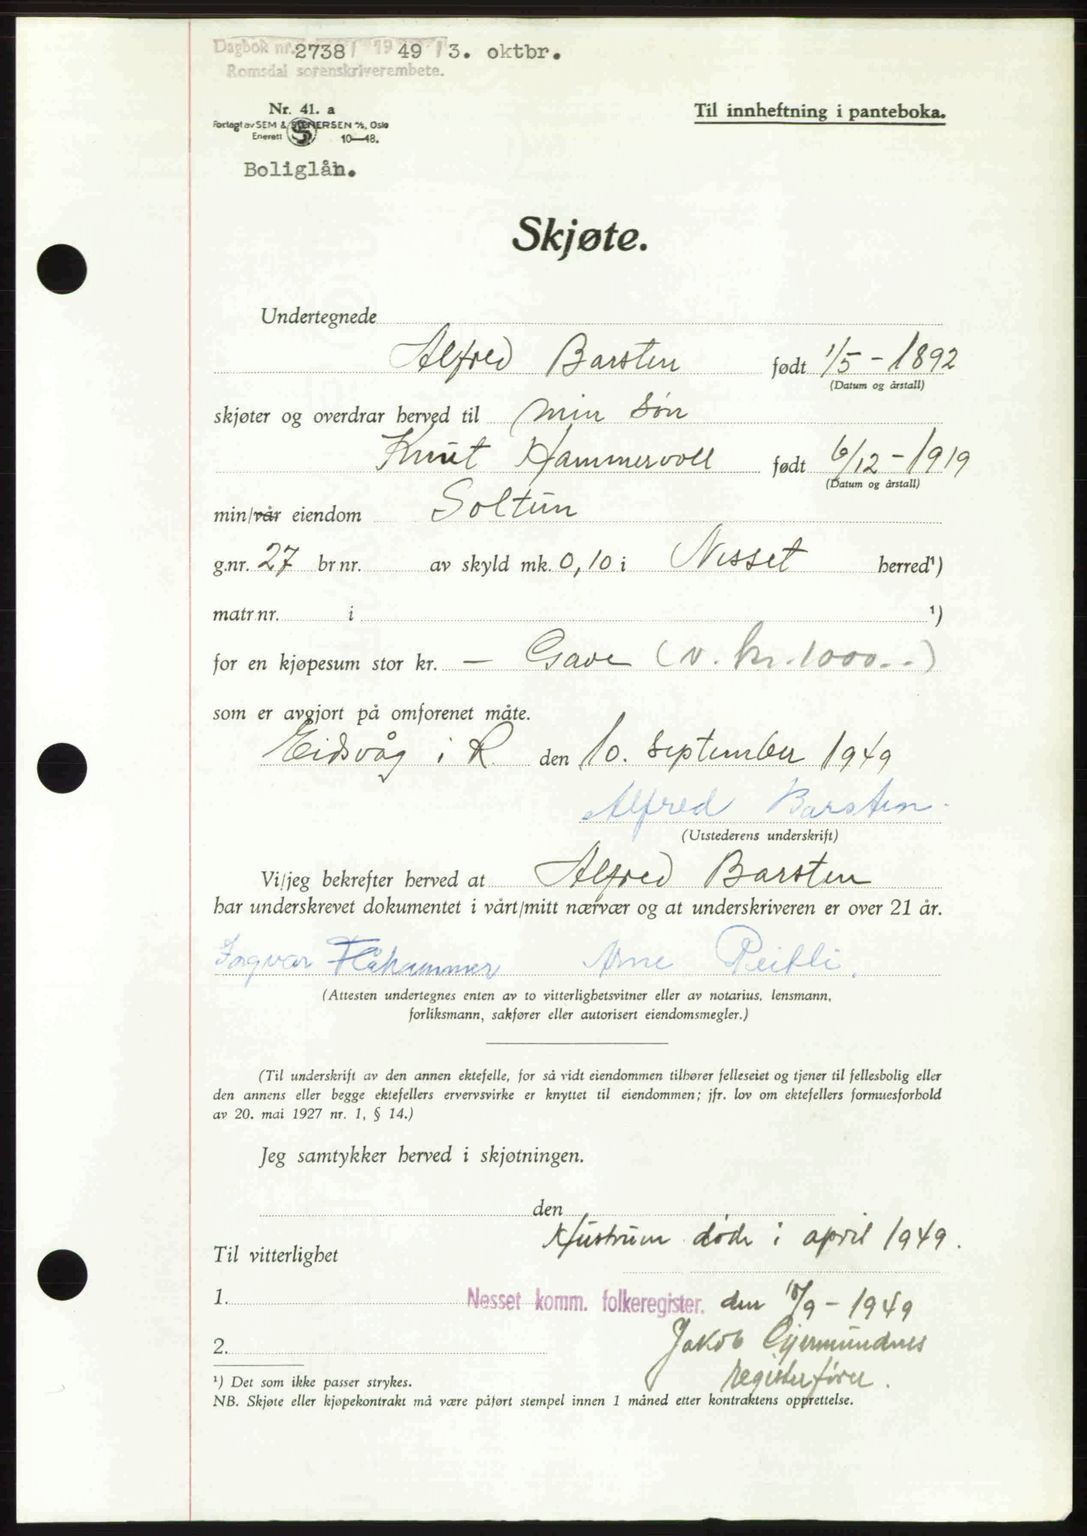 Dagbok nr. 2738 / 1949 / 3. oktbr.
Romsdal sorenskriverembete.
Nr. 41. a
Forlagt av SEM & STENERSEN A/S, Oslo
Enerett 10—48.
Til innheftning i panteboka.
Boliglån.
Skjøte.
Undertegnede
Alfred Barsten født 1/5 - 1892
(Datum og årstall)
skjøter og overdrar herved til min søn
Knut Hammervoll født 6/12 - 1919
(Datum og årstall)
min/vår eiendom Soltun
g.nr. 27 br.nr. av skyld mk. 0,10 i Nesset herred¹)
matr.nr. i ¹)
for en kjøpesum stor kr. — Gave (v. kr. 1000.-)
som er avgjort på omforenet måte.
Eidsvåg i R. den 10. september 1949
Alfred Barsten.
(Utstederens underskrift)
Vi/jeg bekrefter herved at Alfred Barsten
har underskrevet dokumentet i vårt/mitt nærvær og at underskriveren er over 21 år.
Ingvar Flåhammer Arne
(Attesten undertegnes enten av to vitterlighetsvitner eller av notarius, lensmann,
forliksmann, sakfører eller autorisert eiendomsmegler.)
(Til underskrift av den annen ektefelle, for så vidt eiendommen tilhører felleseiet og tjener til fellesbolig eller
den annens eller begge ektefellers ervervsvirke er knyttet til eiendommen; jfr. lov om ektefellers formuesforhold
av 20. mai 1927 nr. 1, § 14.)
Jeg samtykker herved i skjøtningen.
den
Hustrum døde i april 1949.
Til vitterlighet
1. Nesset komm. folkeregister. den 10/9 - 1949
Jakob Gjermundnes
2.
registerfører.
¹) Det som ikke passer strykes.
NB. Skjøte eller kjøpekontrakt må være påført stempel innen 1 måned etter kontraktens opprettelse.